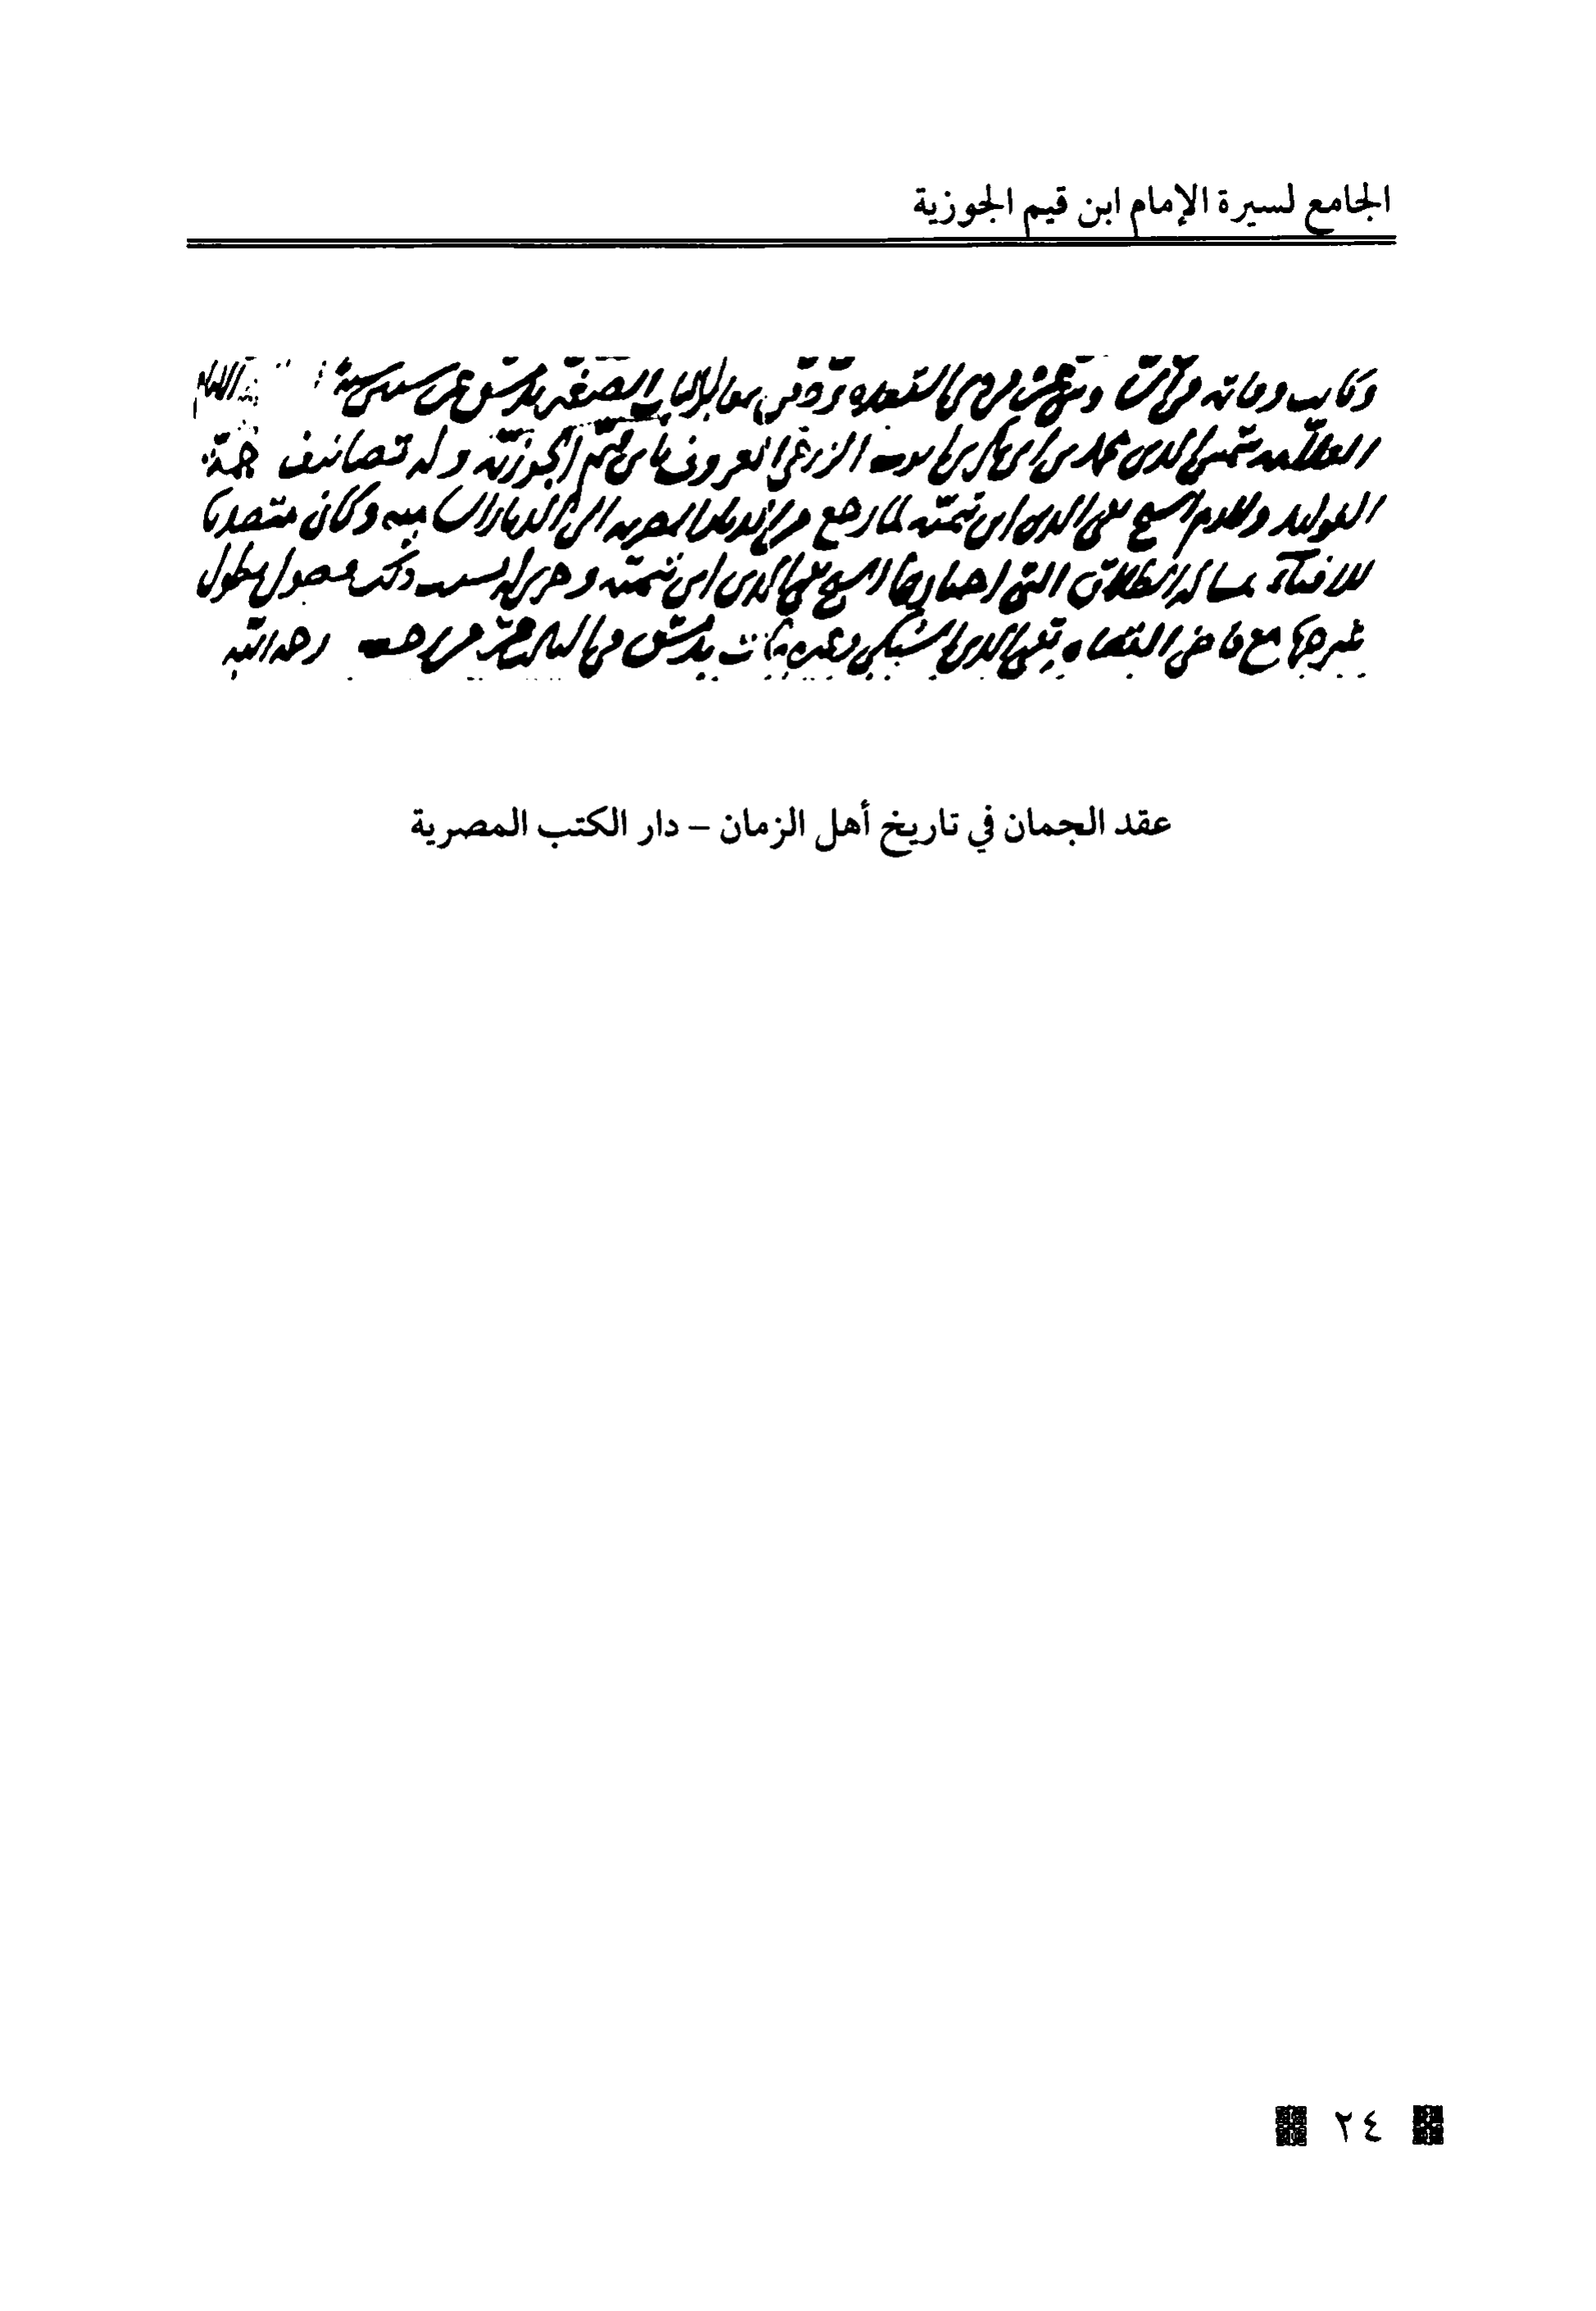 الجامع لسيرة الإمام ابن قيم الجوزية
وكانت وفاته في ثالث وعشرين من ذي القعدة ودفن بمقابر الباب الصغير بدمشق عن ستين سنة
العلامة شمس الدين محمد بن أبي بكر بن أيوب الزرعي المعروف بابن قيم الجوزية وله تصانيف جمة
ولازم الشيخ تقي الدين ابن تيمية لما رجع من الديار المصرية الى الديار الشامية وكان متصديا
للافتاء بمسألة الطلاق التي اختارها الشيخ تقي الدين ابن تيمية وجرى له بسبب ذلك فصول يطول
شرحها مع قاضي القضاة تقي الدين السبكي وغيره مات بدمشق في ثالث عشر من رجب رحمه الله
عقد الجمان في تاريخ أهل الزمان – دار الكتب المصرية
٢٤